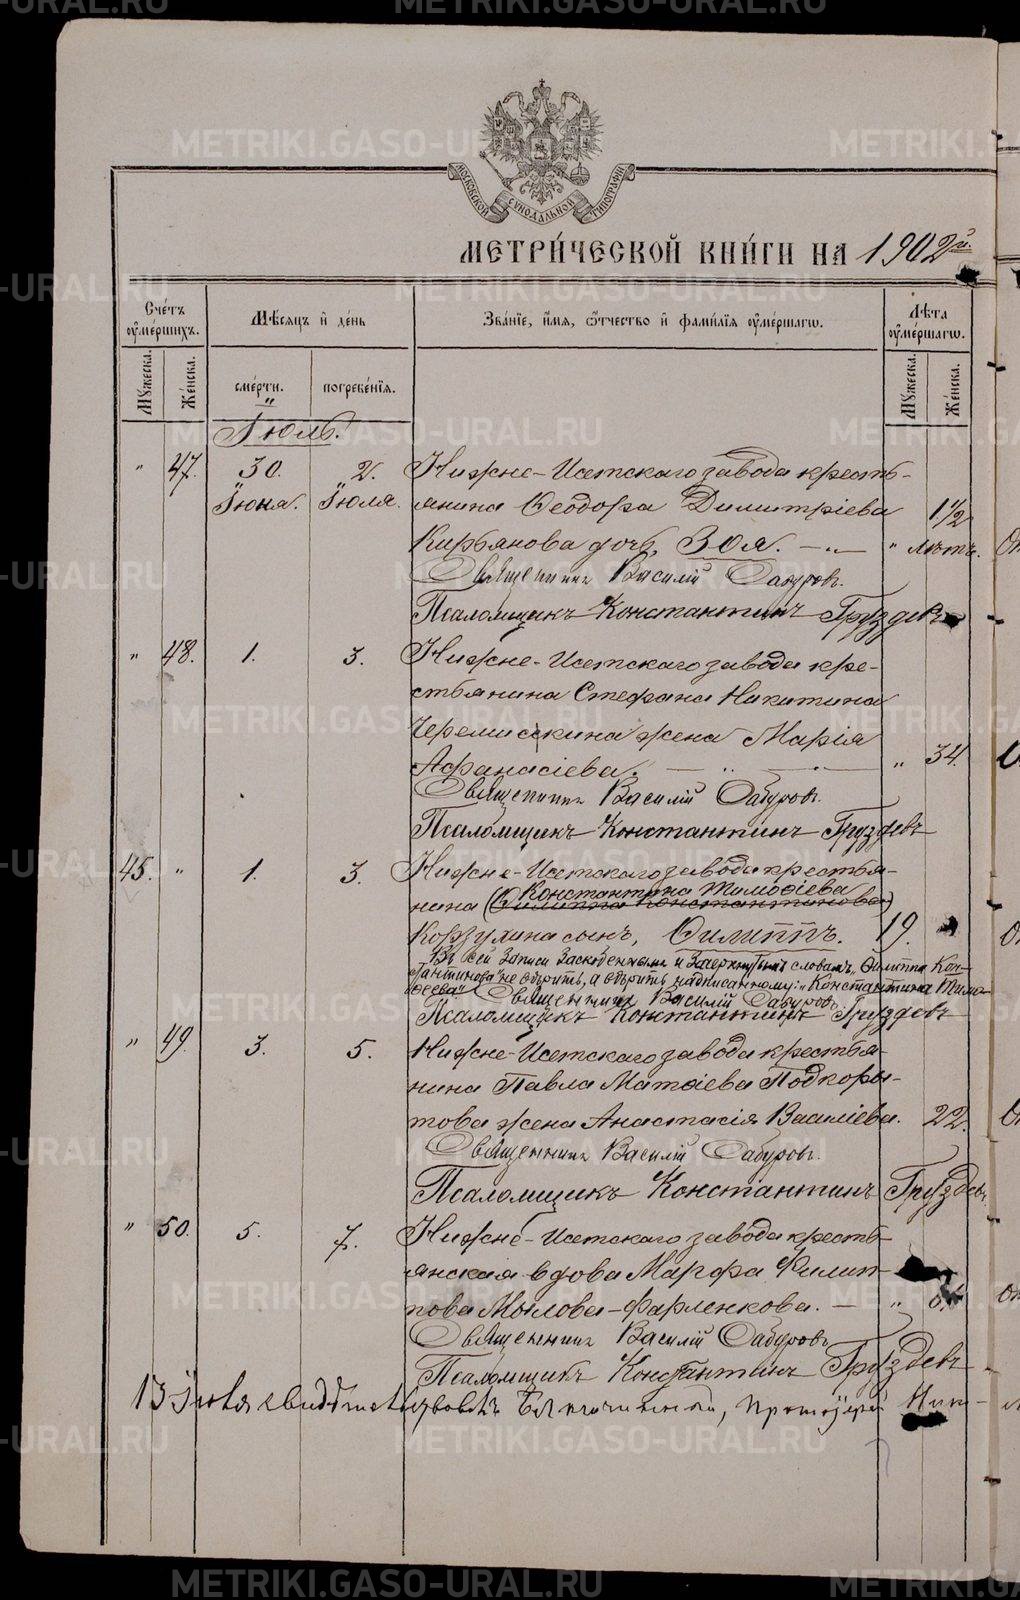 МОСКОВСКОЙ СѴНОДАЛЬНОЙ ТИПОГРАФІИ
МЕТРИ́ЧЕСКОЙ КНИ́ГИ НА 1902й.
Сче́тъ ᲂу҆ме́ршихъ.
Мѣ́сяцъ и҆ де́нь
Зва́нїе, и҆́мя, ѻ҆́тчество и҆ фами́лїя ᲂу҆ме́ршагѡ.
Лѣ́та ᲂу҆ме́ршагѡ.
Мꙋ́жеска.
Же́нска.
сме́рти.
погребе́нїя.
Мꙋ́жеска.
Же́нска.
Іюль.
" 47. 30. 2. Нижне-Исетскаго завода кресть-
Іюня. Іюля. янина Ѳеодора Димитріева 1 1/2
Кирьянова дочь, Зоя. — " лѣтъ.
Священникъ Василій Сабуровъ.
Псаломщикъ Константинъ Груздевъ
" 48. 1. 3. Нижне-Исетскаго завода кре-
стьянина Стефана Никитина
Черемискина жена Марія
Афанасіева. — " — " 34.
Священникъ Василій Сабуровъ.
Псаломщикъ Константинъ Груздевъ
45. " 1. 3. Нижне-Исетскаго завода крестья-
Константина Тимоѳіева
нина (Филиппа Константинова)
Корзулина сынъ, Филиппъ. 19.
Въ сей записи заскобленнымъ и зачеркнутымъ словамъ, „Филиппа Кон-
стантинова" не вѣрить, а вѣрить надписанному: „Константина Тимо-
ѳеева" Священникъ Василій Сабуровъ.
Псаломщикъ Константинъ Груздевъ
" 49. 3. 5. Нижне-Исетскаго завода крестья-
нина Павла Матѳіева Подкоры-
това жена Анастасія Василіева. 22.
Священникъ Василій Сабуровъ.
Псаломщикъ Константинъ Груздевъ.
" 50. 5. 7. Нижне-Исетскаго завода кресть-
янская вдова Марфа Филип-
пова Мылова-Фарленкова. — "
Священникъ Василій Сабуровъ
Псаломщикъ Константинъ Груздевъ
13 Іюля свидѣтельствовалъ Благочинный, Протоіерей
METRIKI.GASO-URAL.RU